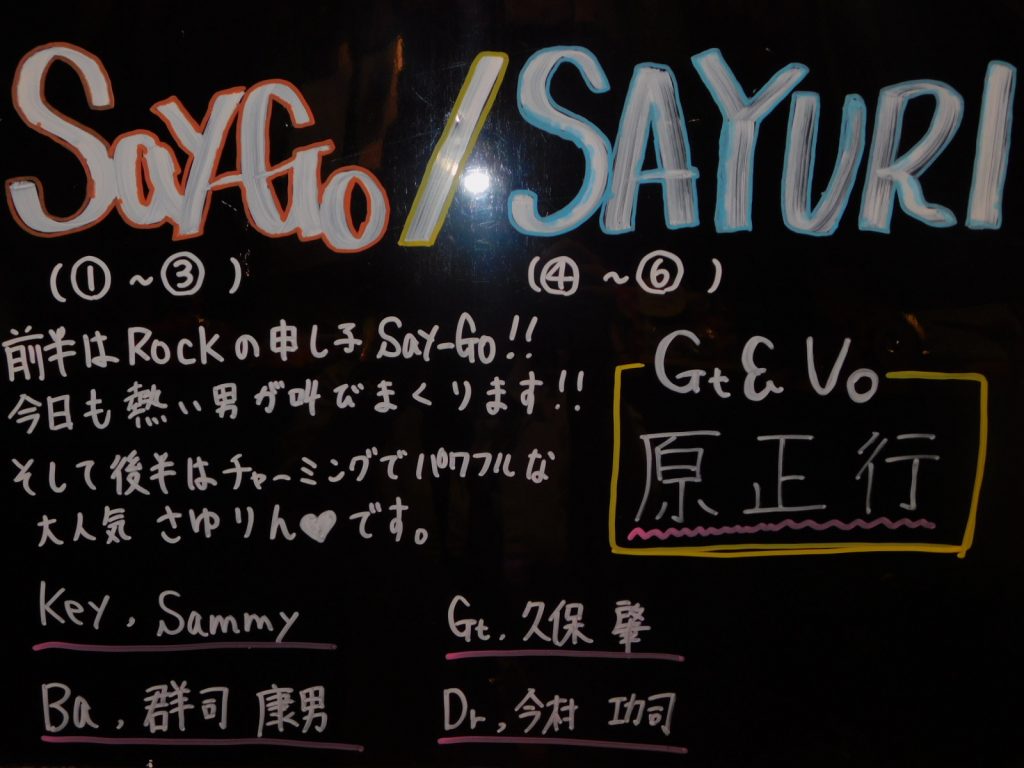 Say-Go / SAYURI
(①~③) (④~⑥)
前半はRockの申し子 Say-Go!!
今日も熱い男が叫びまくります!!
そして後半はチャーミングでパワフルな
大人気 さゆりん♥です。
Gt & Vo
原正行
Key, Sammy
Gt, 久保 肇
Ba, 群司 康男
Dr, 今村 功司